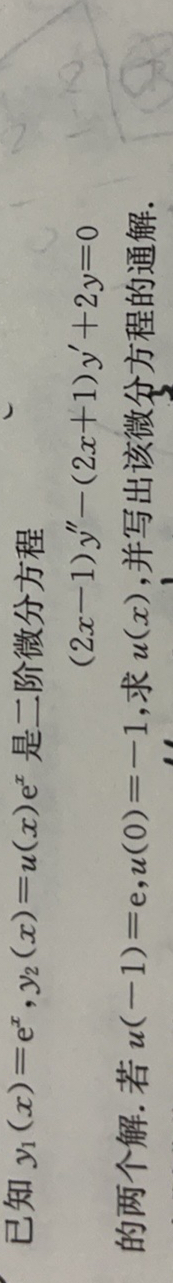 已知 y₁(x)=eˣ,y₂(x)=u(x)eˣ 是二阶微分方程
(2x−1)y″−(2x+1)y′+2y=0
的两个解.若 u(−1)=e,u(0)=−1,求 u(x),并写出该微分方程的通解.